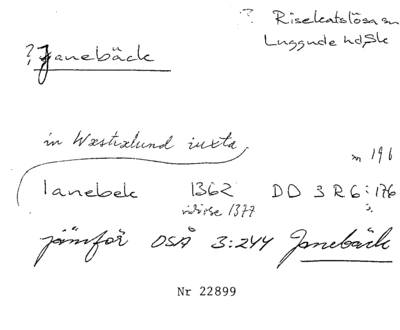 ? Risekatslösa sn
Luggude hd, Sk
? Janebäck
in Wæstrælund iuxta
m 196
Ianebek 1362 DD 3 R 6:176
vidisse 1377 3.
jämför OSÅ 3:244 Janebäck
Nr 22899